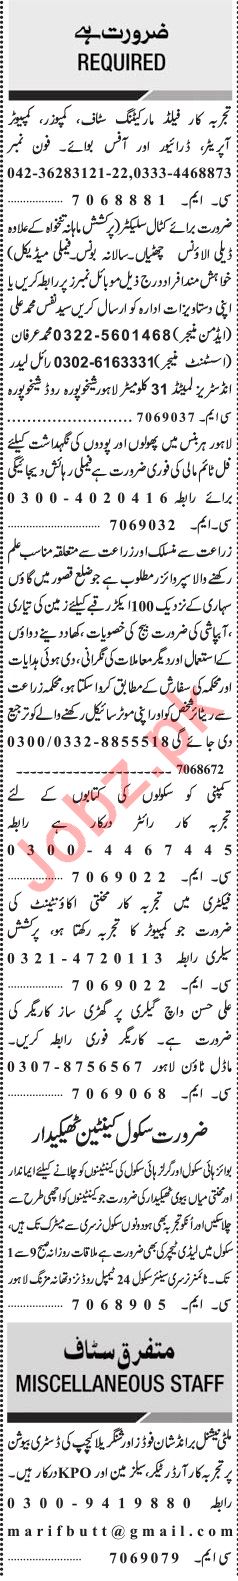 ضرورت ہے
REQUIRED
تجربہ کار فیلڈ مارکیٹنگ سٹاف، کمپوزر، کمپیوٹر
آپریٹر، ڈرائیور اور آفس بوائے۔ فون نمبر
042-36283121-22,0333-4468873
سی۔ ایم۔ 7068881
ضرورت برائے کٹال سلیکٹر (پرکشش ماہانہ تنخواہ کے علاوہ
ڈیلی الاؤنس چھٹیاں۔ سالانہ بونس۔ فیملی میڈیکل)
خواہش مند افراد درج ذیل موبائل نمبرز پر رابطہ کریں یا
اپنی دستاویزات ادارہ کو ارسال کریں سید نفس محمد علی
(ایڈمن منیجر) 0322-5601468 محمد عرفان
(اسسٹنٹ منیجر) 0302-6163331 رائل لیدر
انڈسٹریز لمیٹڈ 31 کلومیٹر لاہور شیخوپورہ روڈ شیخوپورہ
سی ایم۔ 7069037
لاہور ہربنس میں پھولوں اور پودوں کی نگہداشت کیلئے
فل ٹائم مالی کی فوری ضرورت ہے فیملی رہائش دیجائیگی
برائے رابطہ 0300-4020416
سی۔ایم۔ 7069032
زراعت سے منسلک اور زراعت سے متعلقہ مناسب علم
رکھنے والا سپروائزر مطلوب ہے جو ضلع قصور میں گاؤں
سہاری کے نزدیک 100 ایکڑ رقبے کیلئے زمین کی تیاری
، آبپاشی کی ضرورت بیج کی خصوصیات، کھاد دینے دواؤں
کے استعمال اور دیگر معاملات کی نگرانی، دی ہوئی ہدایات
اور محکمہ کی سفارش کے مطابق کروا سکتا ہو، محکمہ زراعت
سے ریٹائر شخص کو اور اپنی موٹر سائیکل رکھنے والے کو ترجیع
دی جائے گی 0300/0332-8855518
7068672
کمپنی کو سکولوں کی کتابوں کے لئے
تجربہ کار رائٹر درکار ہے رابطہ
0300-4467445
سی۔ ایم۔ 7069022
فیکٹری میں تجربہ کار محنتی اکاؤنٹینٹ کی
ضرورت جو کمپیوٹر کا تجربہ رکھتا ہو، پرکشش
سیلری رابطہ 0321-4720113
سی۔ ایم۔ 7069022
علی حسن واچ گیلری پر گھڑی ساز کاریگر کی
ضرورت ہے۔ کاریگر فوری رابطہ کریں۔
ماڈل ٹاؤن لاہور 0307-8756567
سی۔ ایم۔ 7069068
ضرورت سکول کینٹین ٹھیکیدار
بوائز ہائی سکول اور گرلز ہائی سکول کی کینٹینوں کو چلانے کیلئے ایماندار
اور محنتی میاں بیوی ٹھیکیدار کی ضرورت جو کینٹینوں کو اچھی طرح سے
چلا سکیں اور انکو تجربہ بھی ہو دونوں سکول نرسری سے میٹرک تک ہیں،
سکول میں لیڈی ٹیچر کی بھی ضرورت ہے ملاقات روزانہ صبح 9 سے 1
تک۔ ٹائنز نرسری سینئر سکول 24 ٹیمپل روڈ نزد تھانہ مزنگ لاہور
سی۔ ایم۔ 7068905
متفرق سٹاف
MISCELLANEOUS STAFF
ملٹی نیشنل برانڈ شان فوڈز اور شنگریلا کیچپ کی ڈسٹری بیوشن
پر تجربہ کار آرڈر ٹیکر، سیلز مین اور KPO درکار ہیں۔
رابطہ 0300-9419880
marifbutt@gmail.com
سی ایم۔ 7069079
Jobz.pk